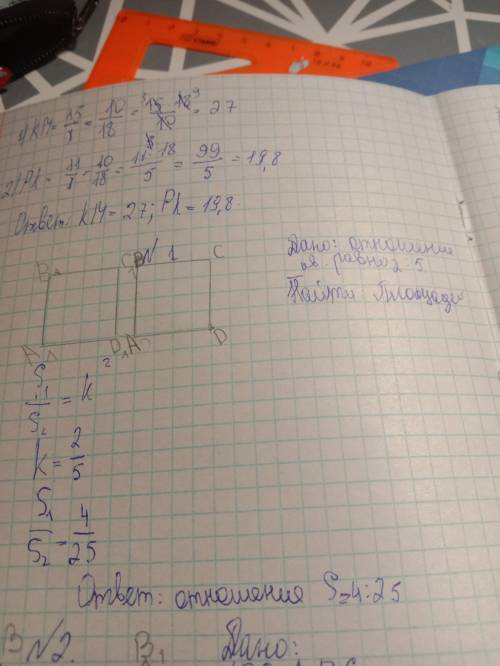 1) KM = 15/x = 10/18 = 15 · 18/10 = 27
2) PK = 11/x = 10/18 = 11 · 18/5 = 99/5 = 19,8
Ответ: KM = 27; PK = 19,8.
№ 1
B₁ C₁ B C
A₁ D₁ A D
Дано: отношение
равно 2:5
Найти: Площади
S₁/S₂ = k²
k = 2/5
S₁/S₂ = 4/25
Ответ: отношения S = 4:25
B №2. B₁ Дано: